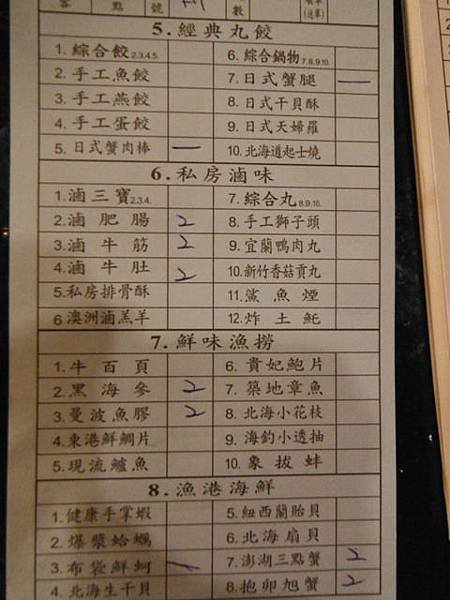 客 點 號 數 (送單)
5.經典丸餃
1.綜合餃2.3.4.5. 6.綜合鍋物7.8.9.10.
2.手工魚餃 7.日式蟹腿 一
3.手工燕餃 8.日式干貝酥
4.手工蛋餃 9.日式天婦羅
5.日式蟹肉棒 一 10.北海道起士燒
6.私房滷味
1.滷三寶2.3.4. 7.綜合丸8.9.10.
2.滷肥腸 2 8.手工獅子頭
3.滷牛筋 2 9.宜蘭鴨肉丸
4.滷牛肚 2 10.新竹香菇貢丸
5.私房排骨酥 11.鯊魚煙
6澳洲滷羔羊 12.炸土魠
7.鮮味漁撈
1.牛百頁 6.貴妃鮑片
2.黑海參 2 7.築地章魚
3.曼波魚膠 2 8.北海小花枝
4.東港鮮鯛片 9.海釣小透抽
5.現流鱸魚 10.象拔蚌
8.漁港海鮮
1.健康手掌蝦 5.紐西蘭胎貝
2.爆漿蛤蠣 6.北海扇貝
3.布袋鮮蚵 一 7.澎湖三點蟹 2
4.北海生干貝 8.抱卵旭蟹 2